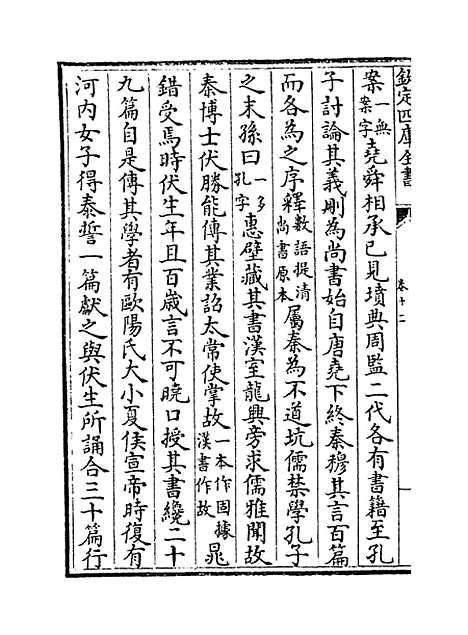 欽定四庫全書
卷十二
案一無案字堯舜相承已見墳典周監二代各有書籍至孔
子討論其義刪為尚書始自唐堯下終秦穆其言百篇
而各為之序釋數語提清尚書原本屬秦為不道坑儒禁學孔子
之末孫曰一多孔字惠壁藏其書漢室龍興旁求儒雅聞故
秦博士伏勝能傳其業詔太常使掌故一本作固據漢書作故晁
錯受焉時伏生年且百歲言不可曉口授其書纔二十
九篇自是傳其學者有歐陽氏大小夏侯宣帝時復有
河内女子得泰誓一篇獻之與伏生所誦合三十篇行